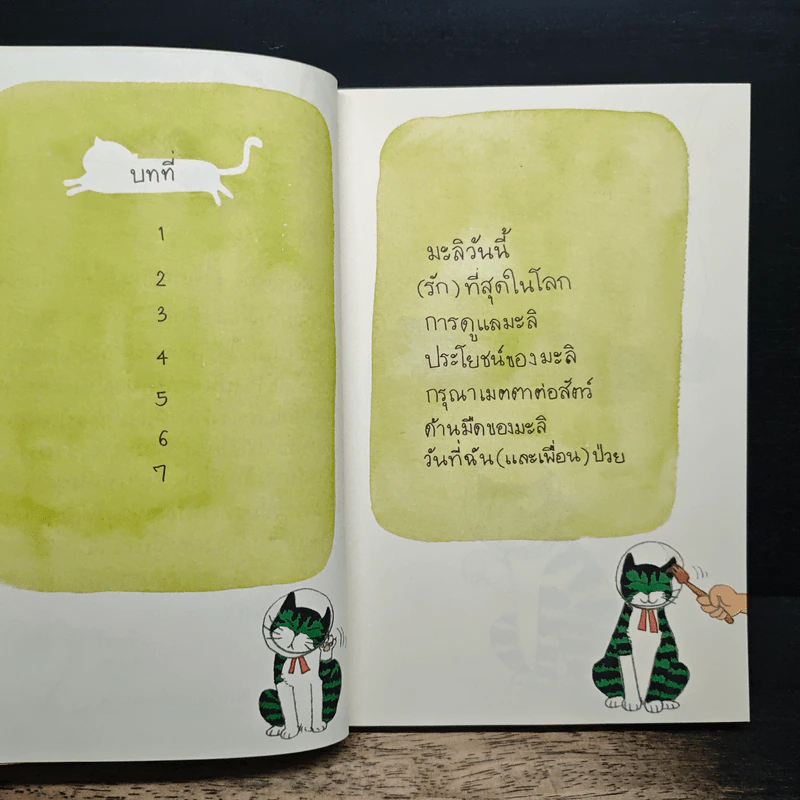 บทที่
1
2
3
4
5
6
7
มะลิวันนี้
(รัก)ที่สุดในโลก
การดูแลมะลิ
ประโยชน์ของมะลิ
กรุณาเมตตาต่อสัตว์
ด้านมืดของมะลิ
วันที่ฉัน(และเพื่อน)ป่วย